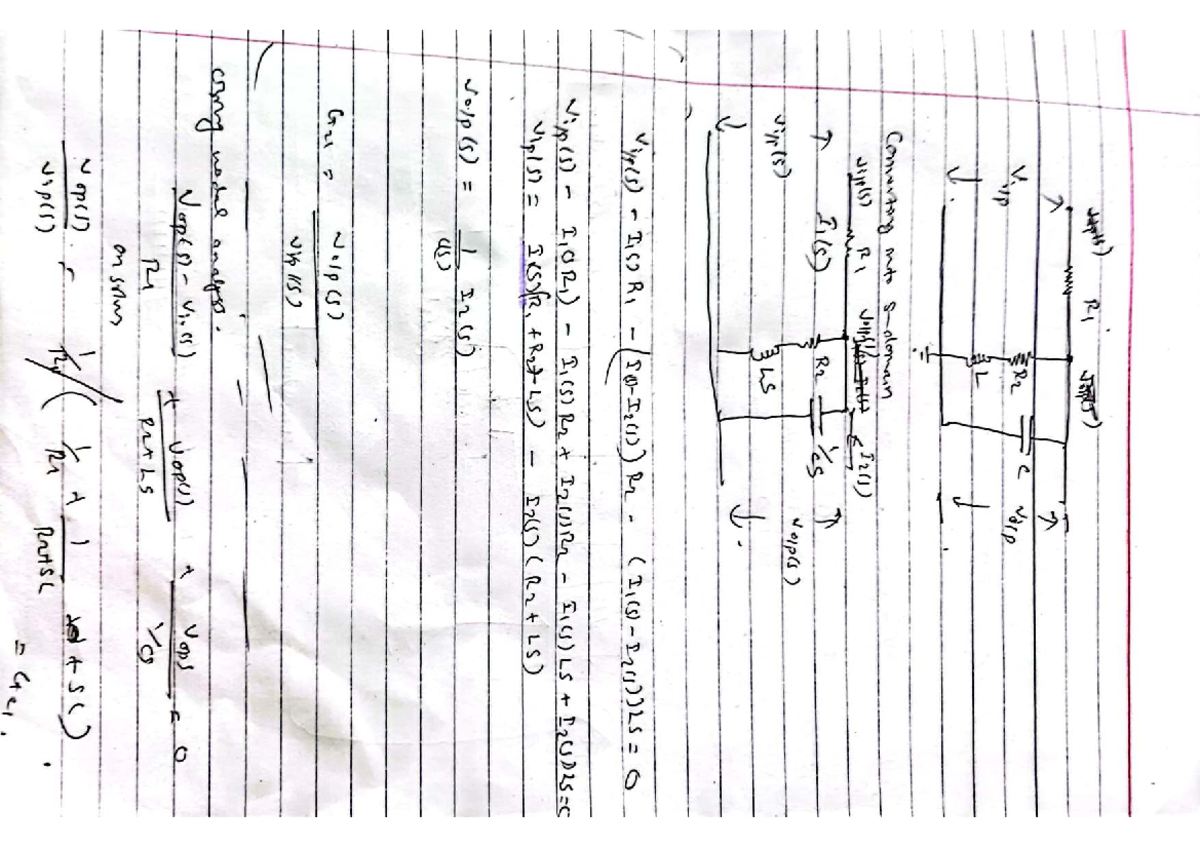 R1
R2
L
C
Vi/p
Vo/p
Converting into S-domain
Vi/p(s) R1
I1(s)
I2(s)
R2
LS
1/CS
Vi/p(s)
Vo/p(s)
Vi/p(s) - I1(s) R1 - (I(s)-I2(s)) R2 - (I1(s)-I2(s))LS = 0
Vi/p(s) - I1(s)R1) - I1(s) R2 + I2(s)R2 - I1(s) LS + I2(s)LS=0
Vi/p(s) = I1(s)(R1+R2+LS) - I2(s)(R2+LS)
Vo/p(s) = 1/C(s) I2(s)
G21 = Vo/p(s) / Vi/p(s)
Using nodal analysis.
Vop(s) - Vip(s) / R1 + Vop(s) / R2+LS + Vops / 1/CS = 0
on solving
Vop(s) / Vip(s) = 1/R1 / ( 1/R1 + 1 / R2+SL + SC ) = G21.